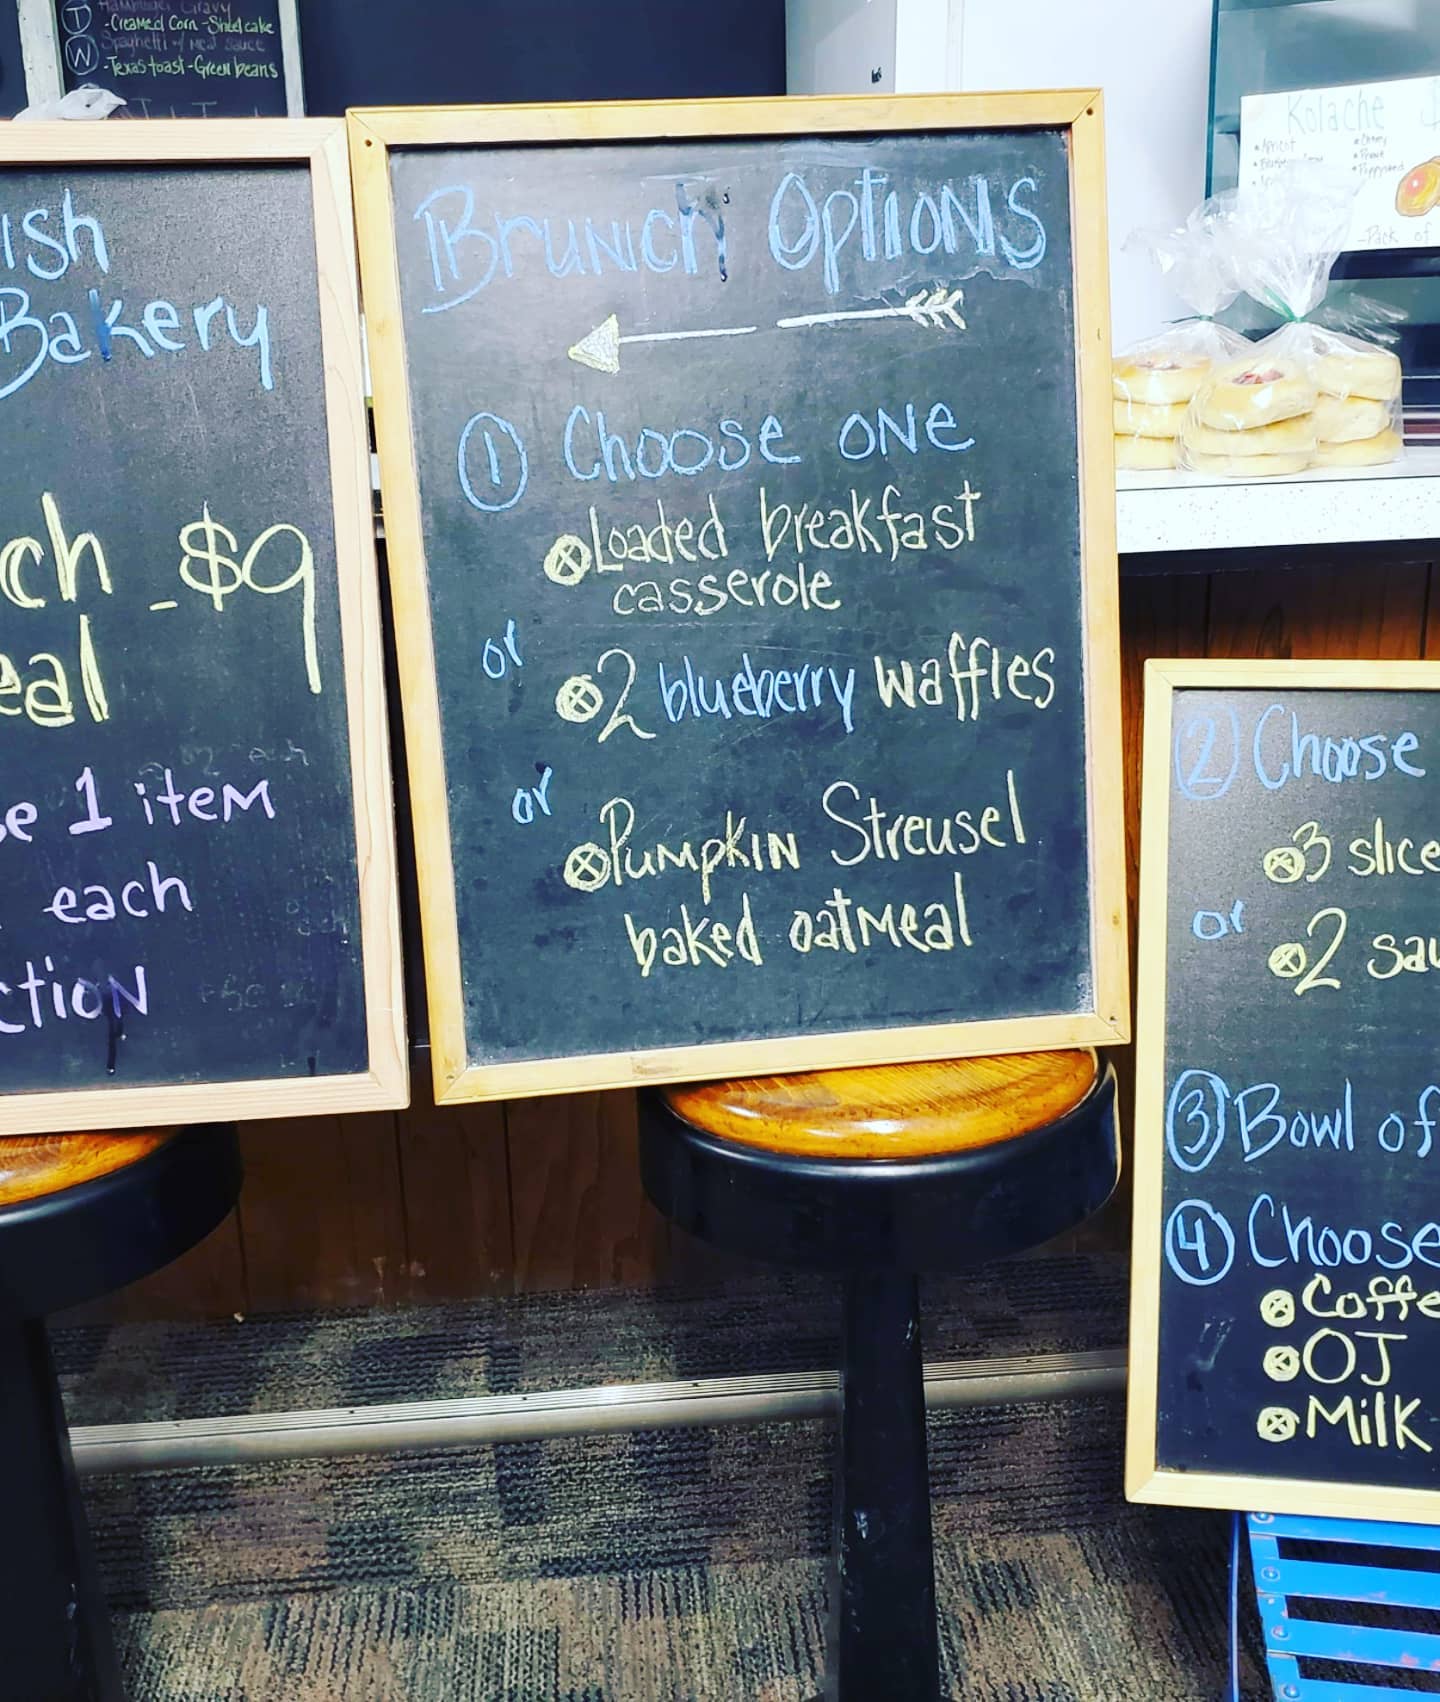 Hamburger Gravy
T -Creamed Corn -Sheet cake
Spaghetti w/ Meat Sauce
W -Texas toast -Green beans
ish
Bakery
ch - $9
eal
se 1 item
each
ction
Brunch Options
1 Choose one
Loaded breakfast
casserole
or
2 blueberry waffles
or
Pumpkin Streusel
baked oatmeal
Kolache $
• Apricot
• Cherry
• Prune
• Poppyseed
-Pack of
2 Choose
3 slice
or
2 sau
3 Bowl of
4 Choose
Coffe
OJ
Milk